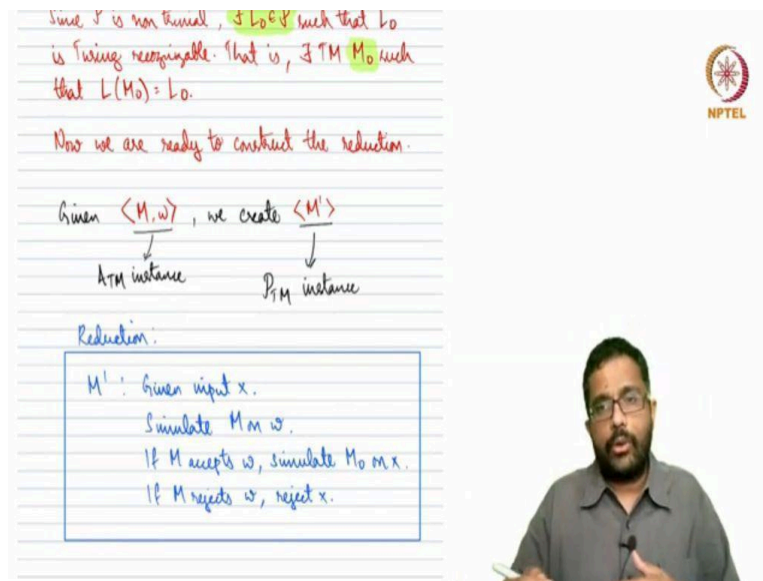 Since P is non trivial, ∃ L₀ ∈ P such that L₀
is Turing recognizable. That is, ∃ TM M₀ such
that L(M₀) = L₀.
NPTEL
Now we are ready to construct the reduction.
Given ⟨M, w⟩, we create ⟨M'⟩
A_TM instance P_TM instance
Reduction:
M' : Given input x.
Simulate M on w.
If M accepts w, simulate M₀ on x.
If M rejects w, reject x.